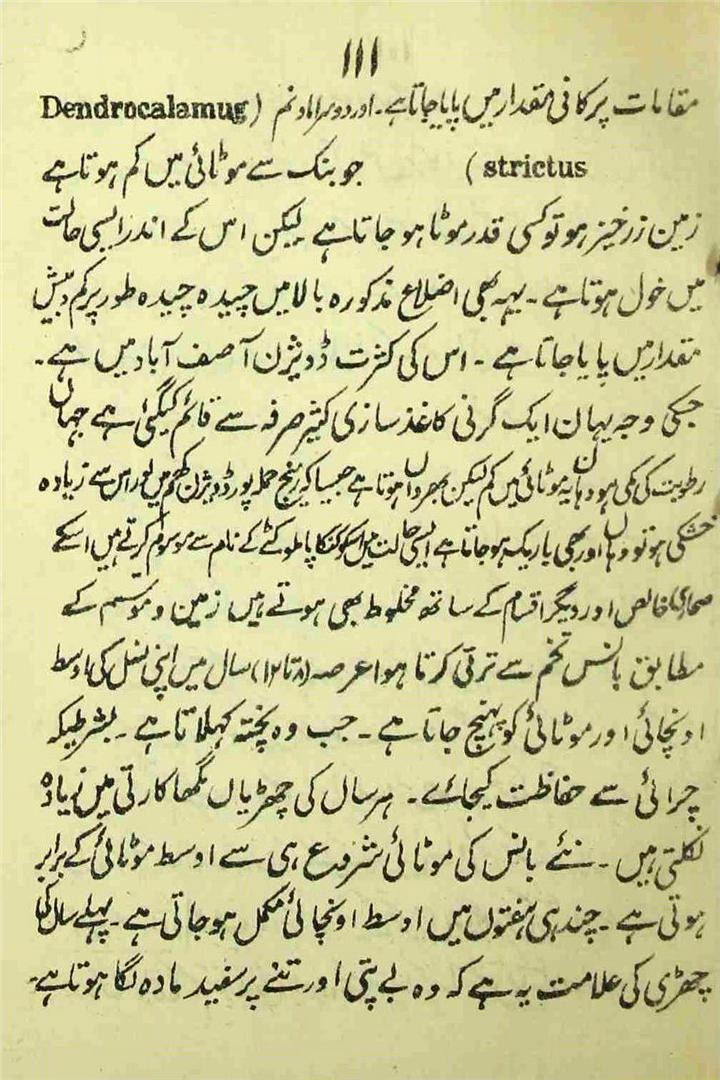 ۱۱۱
مقامات پر کافی مقدار میں پایا جاتا ہے۔ اور دوسرا ماونم (Dendrocalamug
strictus) جو بنک سے موٹائی میں کم ہوتا ہے
زمین زرخیز ہو تو کسی قدر موٹا ہو جاتا ہے لیکن اس کے اندر ایسی حالت
میں خول ہوتا ہے۔ یہہ بھی اضلاع مذکورہ بالا میں چیدہ چیدہ طور پر کم و بیش
مقدار میں پایا جاتا ہے۔ اس کی کثرت ڈویژن آصف آباد میں ہے۔
جسکی وجہ یہان ایک گرنی کاغذ سازی کثیر صرفہ سے قائم کیگئی ہے جہاں
رطوبت کی کمی ہو وہاں یہ موٹائی میں کم لیکن بھرواں ہوتا ہے جیسا کہ رینج جملہ پور ڈویژن کھمم میں اور اس سے زیادہ
خشکی ہو تو وہاں اور بھی باریک ہو جاتا ہے ایسی حالت میں اسکو کنکا یا ملو کٹے کے نام سے موسوم کرتے ہیں اسکے
صحاری خالص اور دیگر اقسام کے ساتھ مخلوط بھی ہوتے ہیں زمین و موسم کے
مطابق بانس تخم سے ترقی کرتا ہوا عرصہ (۸ تا ۱۲) سال میں اپنی نسل کی اوسط
اونچائی اور موٹائی کو پہنچ جاتا ہے۔ جب وہ پختہ کہلاتا ہے۔ بشرطیکہ
چرائی سے حفاظت کیجائے۔ ہر سال کی چھڑیاں نگھا کارتی میں زیادہ
نکلتی ہیں۔ نئے بانس کی موٹائی شروع ہی سے اوسط موٹائی کے برابر
ہوتی ہے۔ چند ہی ہفتوں میں اوسط اونچائی مکمل ہو جاتی ہے۔ پہلے سال کی
چھڑی کی علامت یہ ہے کہ وہ بے پتی اور تنے پر سفید مادہ لگا ہوتا ہے۔